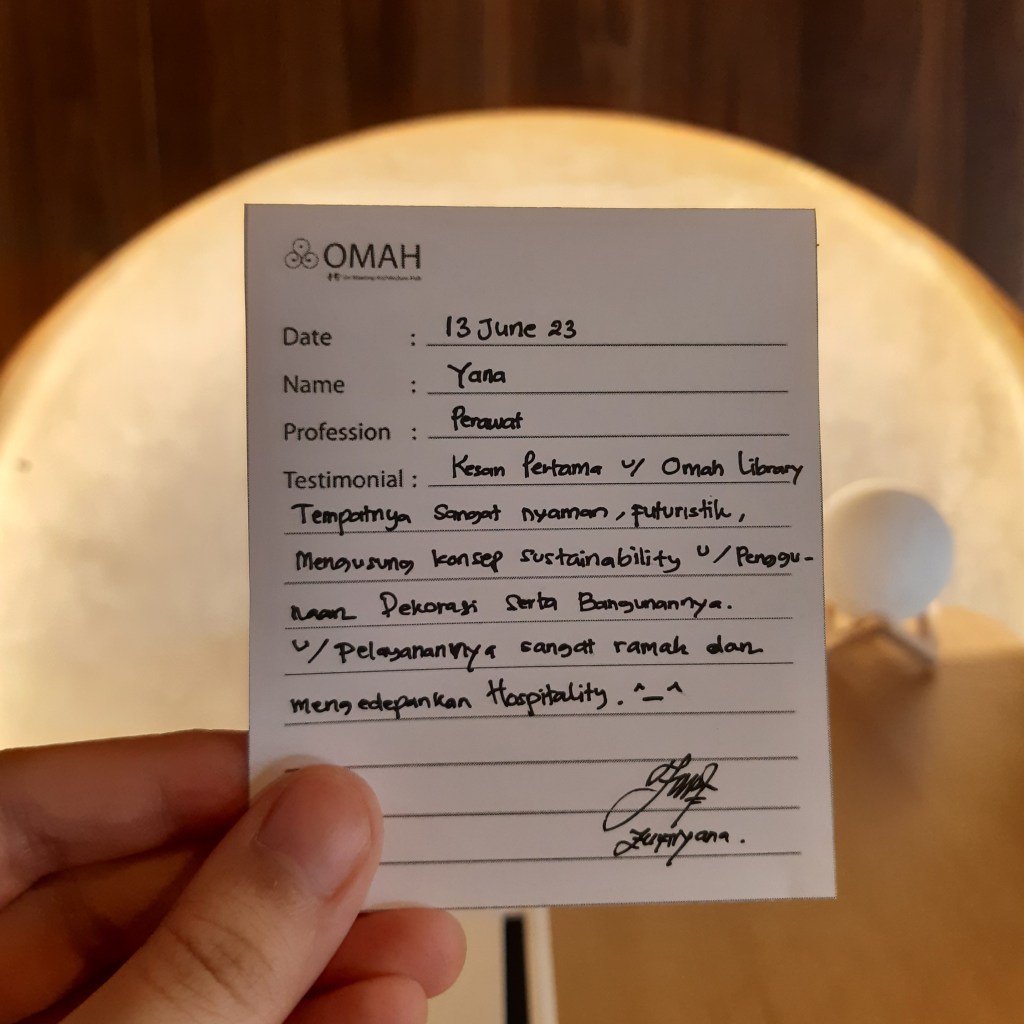 OMAH
Date : 13 June 23
Name : Yana
Profession : Perawat
Testimonial : Kesan Pertama u/ Omah Library
Tempatnya sangat nyaman, futuristik,
Mengusung konsep sustainability u/ Penggu-
naan Dekorasi serta Bangunannya.
u/ Pelayanannya sangat ramah dan
mengedepankan Hospitality. ^_^